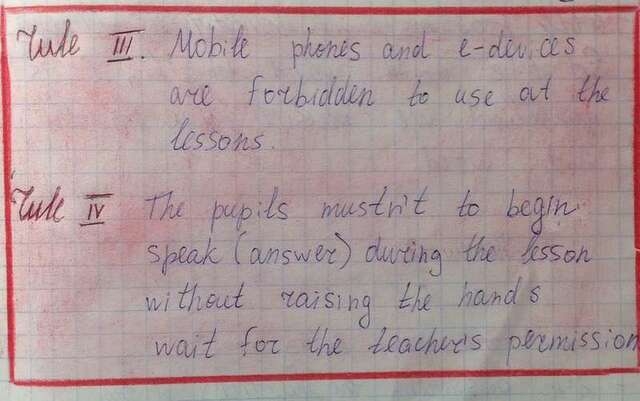 Rule III. Mobile phones and e-devices
are forbidden to use at the
lessons.
Rule IV The pupils mustn't to begin
speak (answer) during the lesson
without raising the hands
wait for the teacher's permission